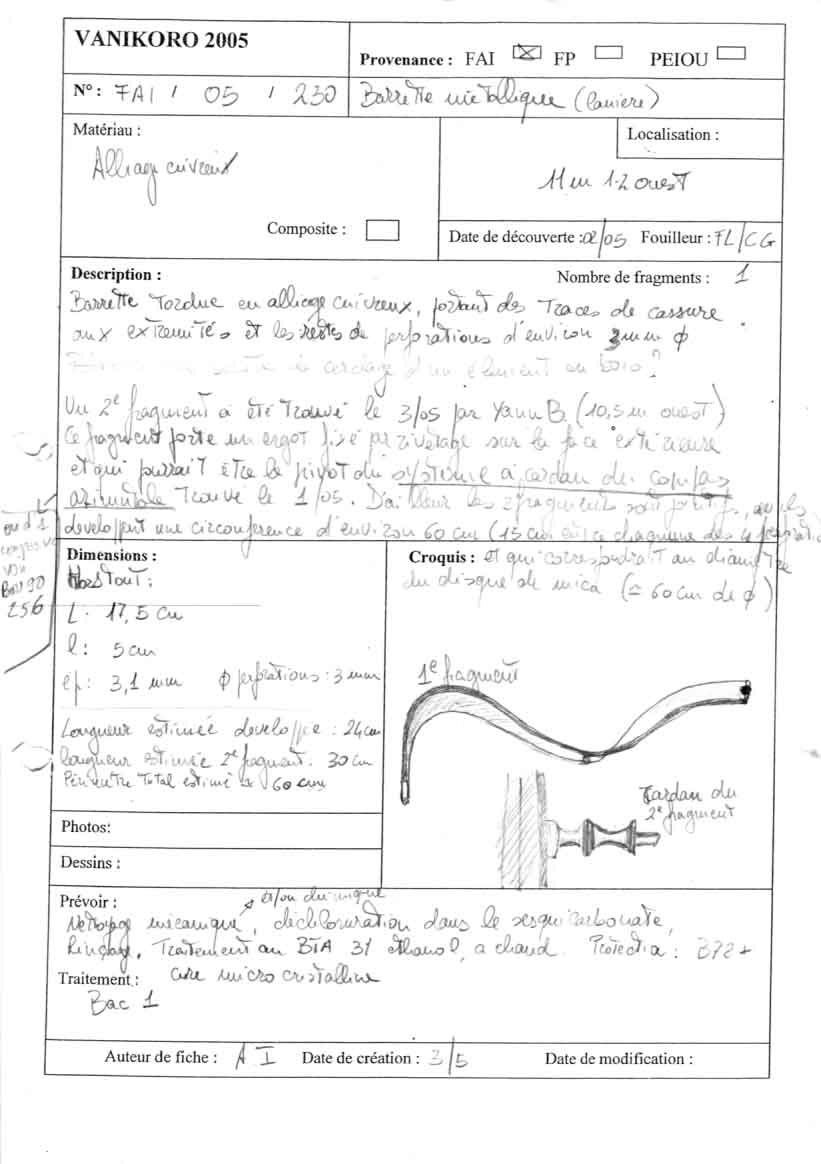 VANIKORO 2005
Provenance : FAI FP PEIOU
N° : FAI / 05 / 230 Barrette métallique (laniere)
Matériau :
Alliage cuivreux
Composite :
Localisation :
11 m 1-2 ouest
Date de découverte : 02/05 Fouilleur : FL/CG
Description : Nombre de fragments : 1
Barrette Tordue en alliage cuivreux, portant des Traces de cassure
aux extremités et les restes de perforations d'environ 3mm ϕ
cerclage d'un element en bois ?
Un 2e fragment a été Trouvé le 3/05 par Yann B. (10,5 m ouest)
Ce fragment porte un ergot fixé par rivetage sur la face extérieure
et qui pourrait être le pivot du système à cardan du compas
azimutal Trouvé le 1/05. D'ailleur les 2 fragments sont
developpent une circonference d'environ 60 cm (15 cm
et qui correspondrait au diamètre
du disque de mica (≃ 60 cm de ϕ)
compas
256
Dimensions :
Hors Tout :
L : 17,5 cm
l : 5 cm
ep : 3,1 mm ϕ perforations : 3 mm
Longueur estimée developpée : 24 cm
longueur estimée 2e fragment : 30 cm
Périmetre Total estimé 60 cm
Croquis :
1e fragment
Cardan du
2e fragment
Photos:
Dessins :
Prévoir : et/ou chimique
Nettoyage mécanique, dechloruration dans le sesquicarbonate,
Rinçage, Traitement au BTA 3% ethanol, a chaud. Protection : B72 +
Traitement : cire micro cristalline
Bac 1
Auteur de fiche : A I Date de création : 3/5 Date de modification :